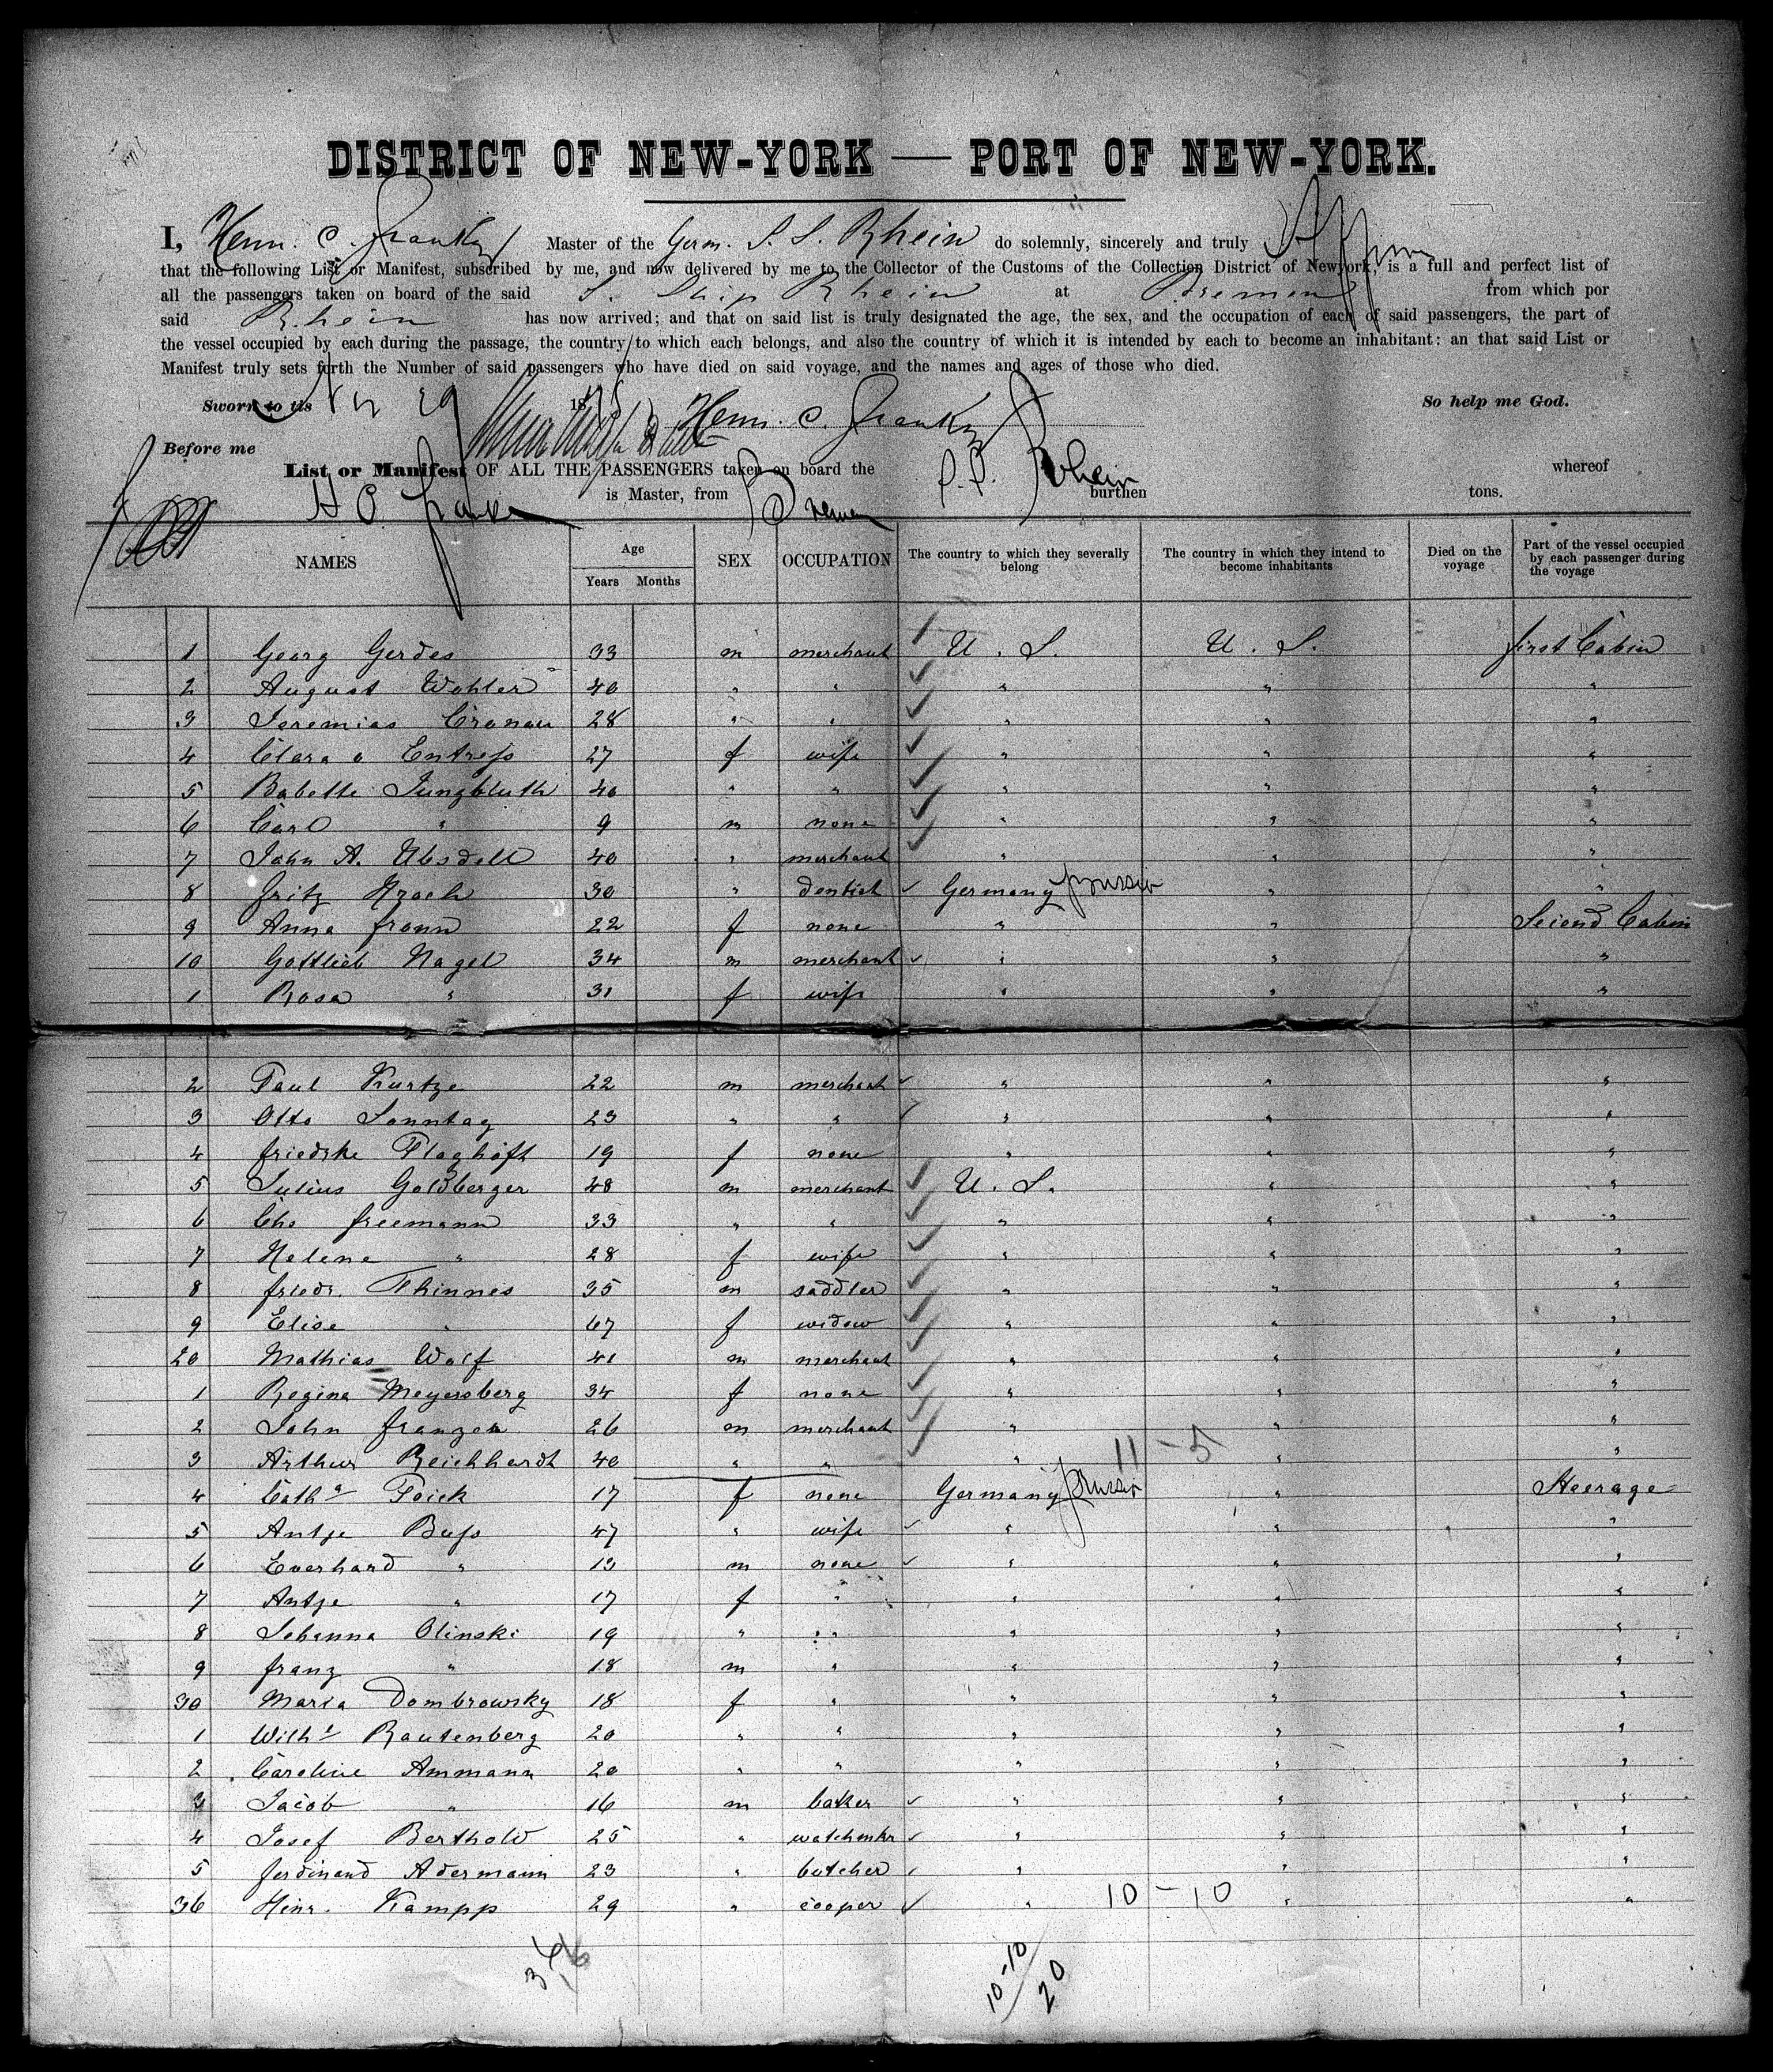 DISTRICT OF NEW-YORK — PORT OF NEW-YORK.
I, Henr. C. Franke Master of the Germ. S. S. Rhein do solemnly, sincerely and truly
that the following List or Manifest, subscribed by me, and now delivered by me to the Collector of the Customs of the Collection District of Newyork, is a full and perfect list of
all the passengers taken on board of the said S. Ship Rhein at Bremen from which por
said Rhein has now arrived; and that on said list is truly designated the age, the sex, and the occupation of each of said passengers, the part of
the vessel occupied by each during the passage, the country to which each belongs, and also the country of which it is intended by each to become an inhabitant: an that said List or
Manifest truly sets forth the Number of said passengers who have died on said voyage, and the names and ages of those who died.
Sworn to tis Nov 29 187 Henr. C. Franke So help me God.
Before me
List or Manifest OF ALL THE PASSENGERS taken on board the S. S. Rhein whereof
H C. Franke is Master, from Bremen burthen tons.
NAMES Age Years Months SEX OCCUPATION The country to which they severally belong The country in which they intend to become inhabitants Died on the voyage Part of the vessel occupied by each passenger during the voyage
1 Georg Gerdes 33 m merchant U. S. U. S. first Cabin
2 August Wohler 40 " " " " "
3 Jeremias Cronau 28 " " " " "
4 Clara Entress 27 f wife " " "
5 Babette Jungbluth 40 " " " " "
6 Carl " 9 m none " " "
7 John A. Ubsdell 40 " merchant " " "
8 Fritz 30 " dentist Germany Prussia " "
9 Anna 22 f none " " Second Cabin
10 Gottlieb Nagel 34 m merchant " " "
1 Rosa " 31 f wife " " "
2 Paul Kurtze 22 m merchant " " "
3 Otto Sonntag 23 " " " " "
4 Friedrke Plaghöft 19 f none " " "
5 Julius Goldberger 48 m merchant U. S. " "
6 Chs Freemann 33 " " " " "
7 Helene " 28 f wife " " "
8 Friedr. Thinnes 35 m saddler " " "
9 Elise " 67 f widow " " "
20 Mathias Wolf 41 m merchant " " "
1 Regina Meyersberg 34 f none " " "
2 John Franzen 26 m merchant " " "
3 Arthur Reichhardt 40 " " " 11 - 5 " "
4 Catha Poick 17 f none Germany Prussia " Steerage
5 Antje Buss 47 " wife " " "
6 Everhard " 13 m none " " "
7 Antje " 17 f " " " "
8 Johanna Olinski 19 " " " " "
9 Franz " 18 m " " " "
30 Maria Dombrowsky 18 f " " " "
1 Wilhe Rautenberg 20 " " " " "
2 Caroline Ammann 20 " " " " "
3 Jacob " 16 m baker " " "
4 Josef Berthold 25 " watchmkr " " "
5 Ferdinand Adermann 23 " butcher " " "
36 Hinr. Kampp 29 " cooper " 10 - 10 " "
36
10-10
20